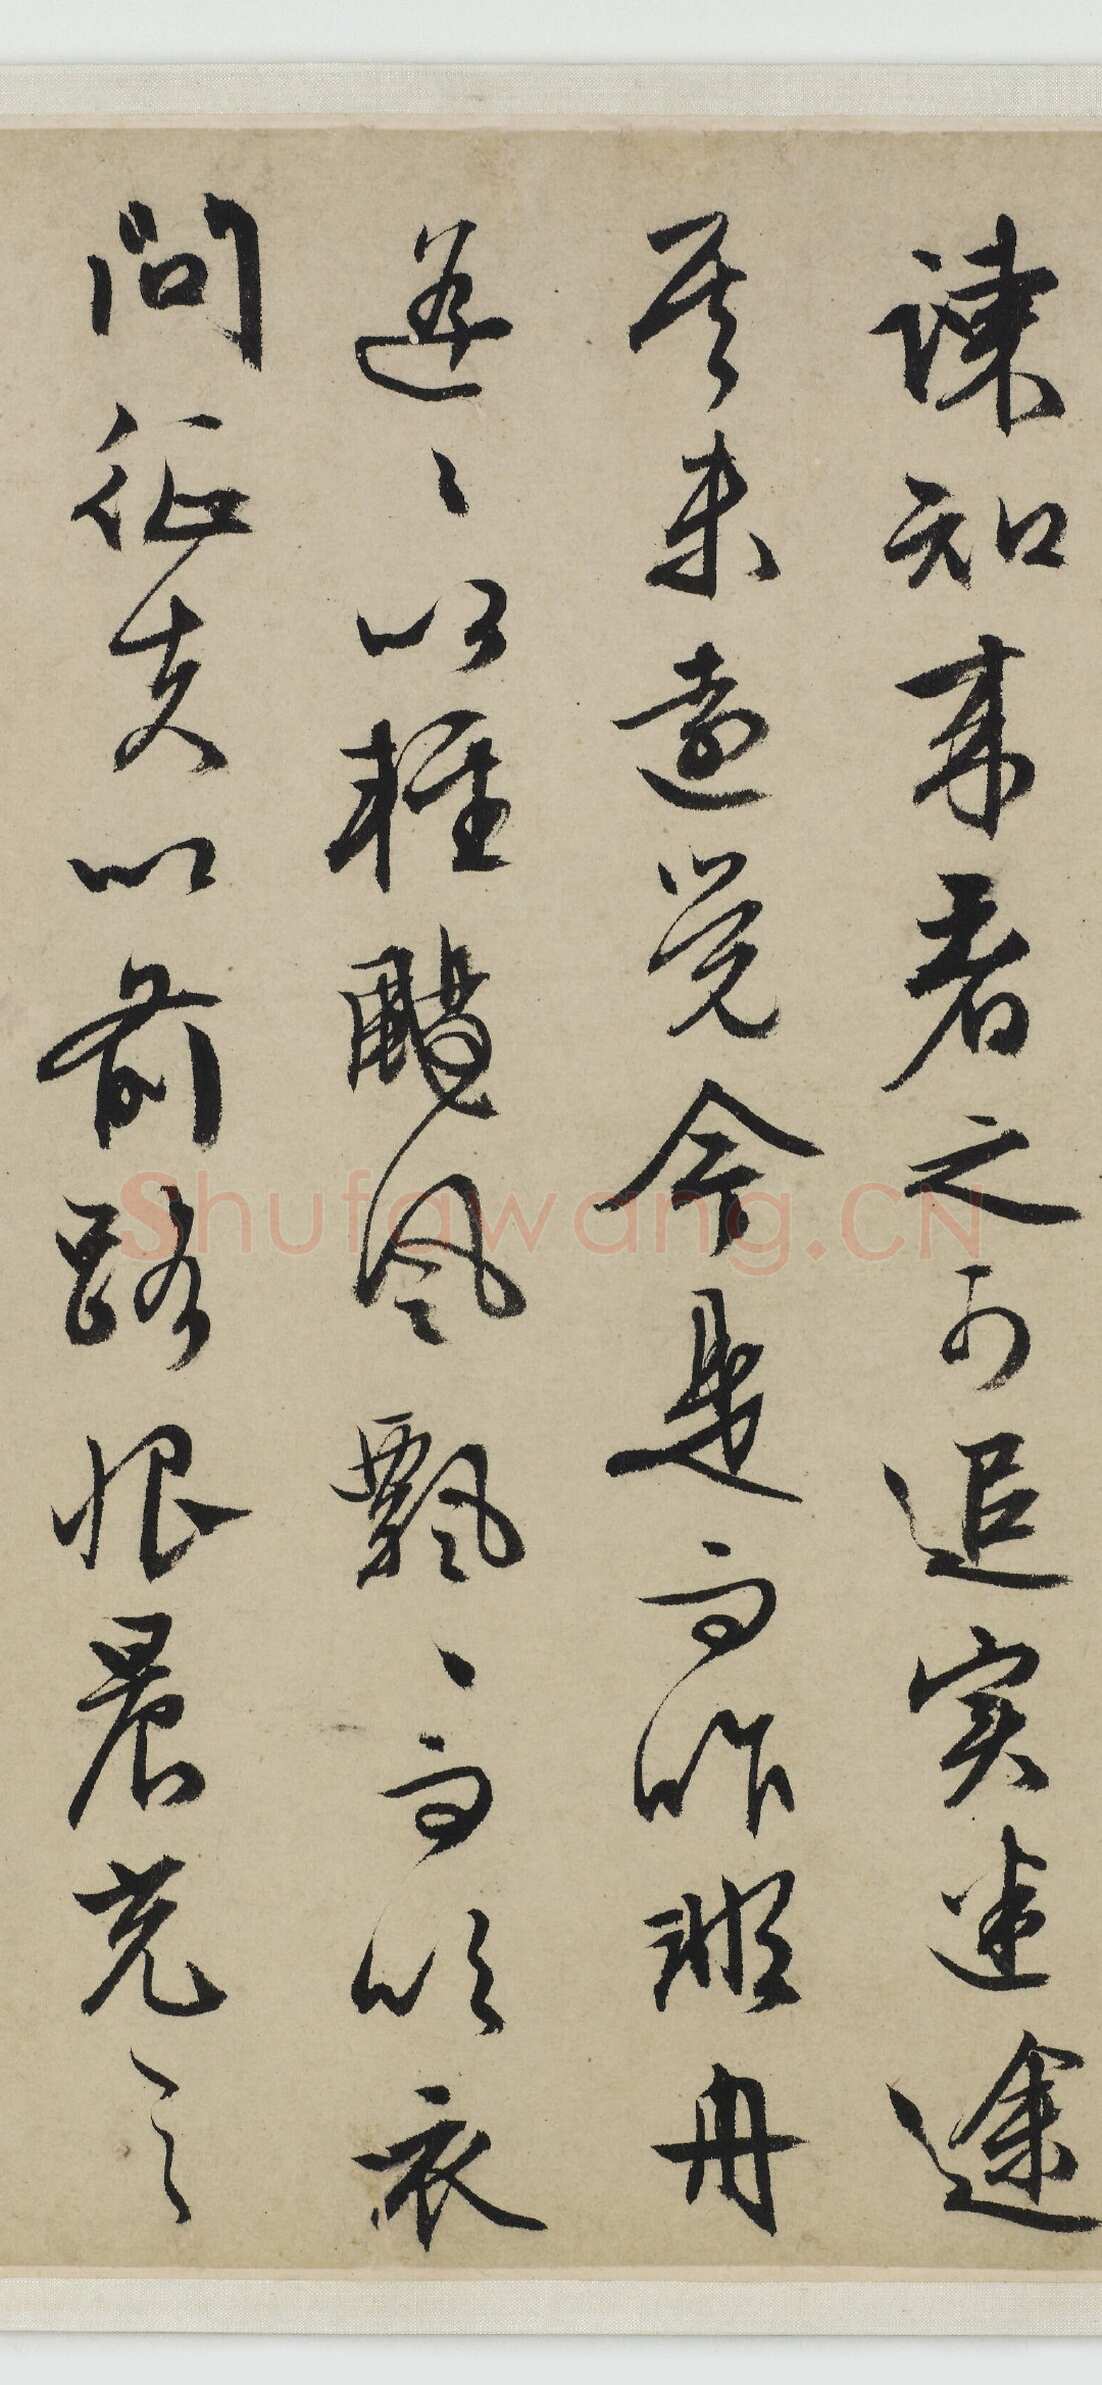 諫知来者之可追實迷途
其未遠覺今是而昨非舟
遥〻以輕颺風飄〻而吹衣
問征夫以前路恨晨光之
Shufawang.CN